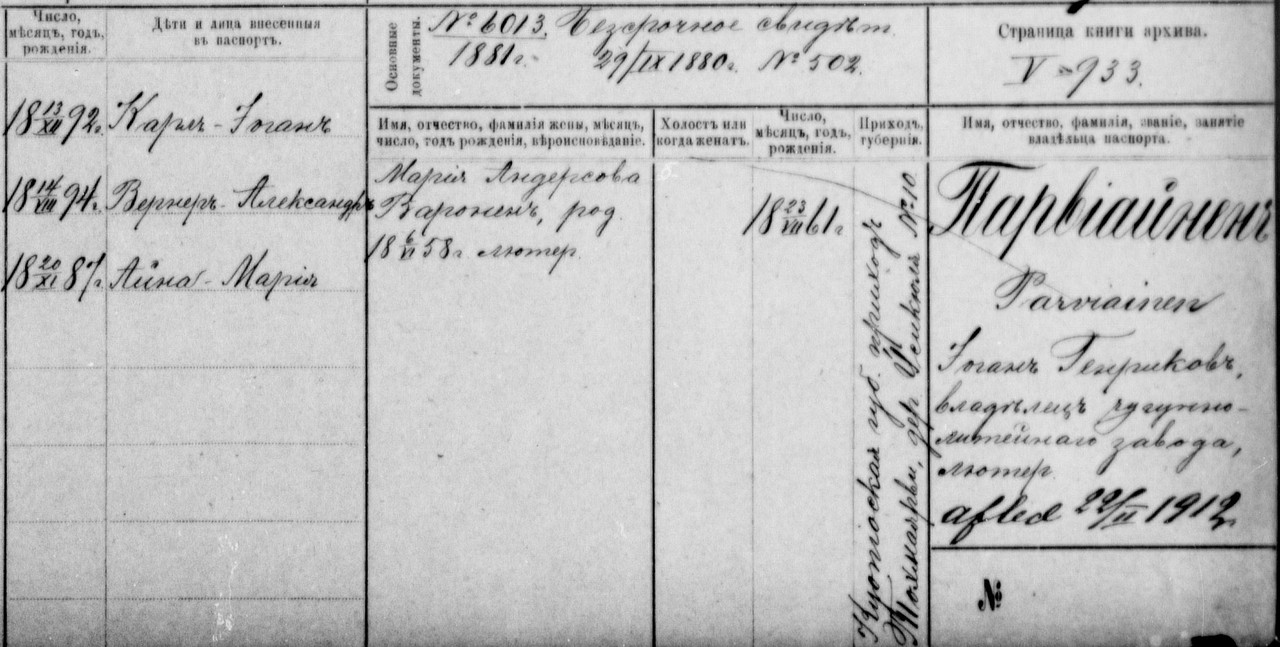 Число, мѣсяцъ, годъ, рожденія.
Дѣти и лица внесенныя въ паспортъ.
18 13/XII 92 г. Карлъ - Іоганъ
18 14/VIII 94 г. Вернеръ - Александръ
18 20/XI 87 г. Айна - Марія
Основные документы.
№ 6013. Безсрочное свидѣт.
1881 г. - 29/IX 1880 г. № 502.
Имя, отчество, фамилія жены, мѣсяцъ,
число, годъ рожденія, вѣроисповѣданіе.
Марія Андерсова
Вароненъ, род.
18 6/VI 58 г. лютер.
Холостъ или
когда женатъ.
Число,
мѣсяцъ, годъ,
рожденія.
18 23/VII 61 г
Приходъ,
губернія.
Куопіоская губ. приходъ
Тохмаярви, дер. № 10.
Страница книги архива.
V - 933.
Имя, отчество, фамилія, званіе, занятіе
владѣльца паспорта.
Парвіайненъ
Parviainen
Іоганъ Генриковъ,
владѣлецъ чугунно-
литейнаго завода,
лютер.
afled 22/II 1912
№